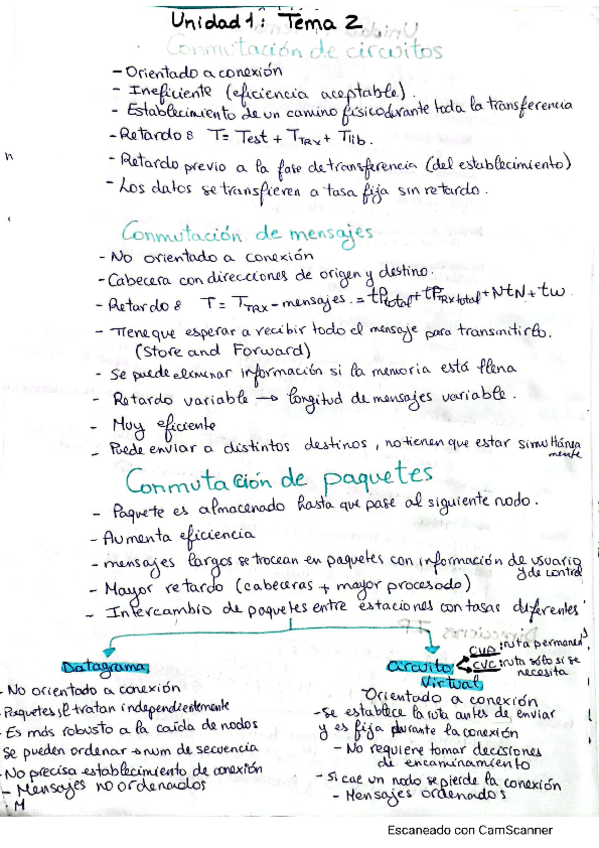 Unidad 1: Tema 2
Conmutación de circuitos
- Orientado a conexión
- Ineficiente (eficiencia aceptable).
- Establecimiento de un camino físico durante toda la transferencia
- Retardo: T = Test + TTRX + Tlib.
- Retardo previo a la fase de transferencia (del establecimiento)
- Los datos se transfieren a tasa fija sin retardo.
Conmutación de mensajes
- No orientado a conexión
- Cabecera con direcciones de origen y destino.
- Retardo: T = TTRX-mensajes. = tPtotal + tPRXtotal + NtN + tw
- Tiene que esperar a recibir todo el mensaje para transmitirlo.
(Store and Forward)
- Se puede eliminar información si la memoria está llena
- Retardo variable → longitud de mensajes variable.
- Muy eficiente
- Puede enviar a distintos destinos, no tienen que estar simultánea
mente
Conmutación de paquetes
- Paquete es almacenado hasta que pase al siguiente nodo.
- Aumenta eficiencia
- mensajes largos se trocean en paquetes con información de usuario
y de control
- Mayor retardo (cabeceras + mayor procesado)
- Intercambio de paquetes entre estaciones con tasas diferentes
Datagrama
- No orientado a conexión
- Paquetes se tratan independientemente
- Es más robusto a la caída de nodos
Se pueden ordenar → num de secuencia
- No precisa establecimiento de conexión
- Mensajes no ordenados
- M
Circuito Virtual
CVP: ruta permanen
CVC: ruta sólo si se
necesita
Orientado a conexión
- Se establece la ruta antes de enviar
y es fija durante la conexión
- No requiere tomar decisiones
de encaminamiento
- Si cae un nodo se pierde la conexión
- Mensajes ordenados
Escaneado con CamScanner